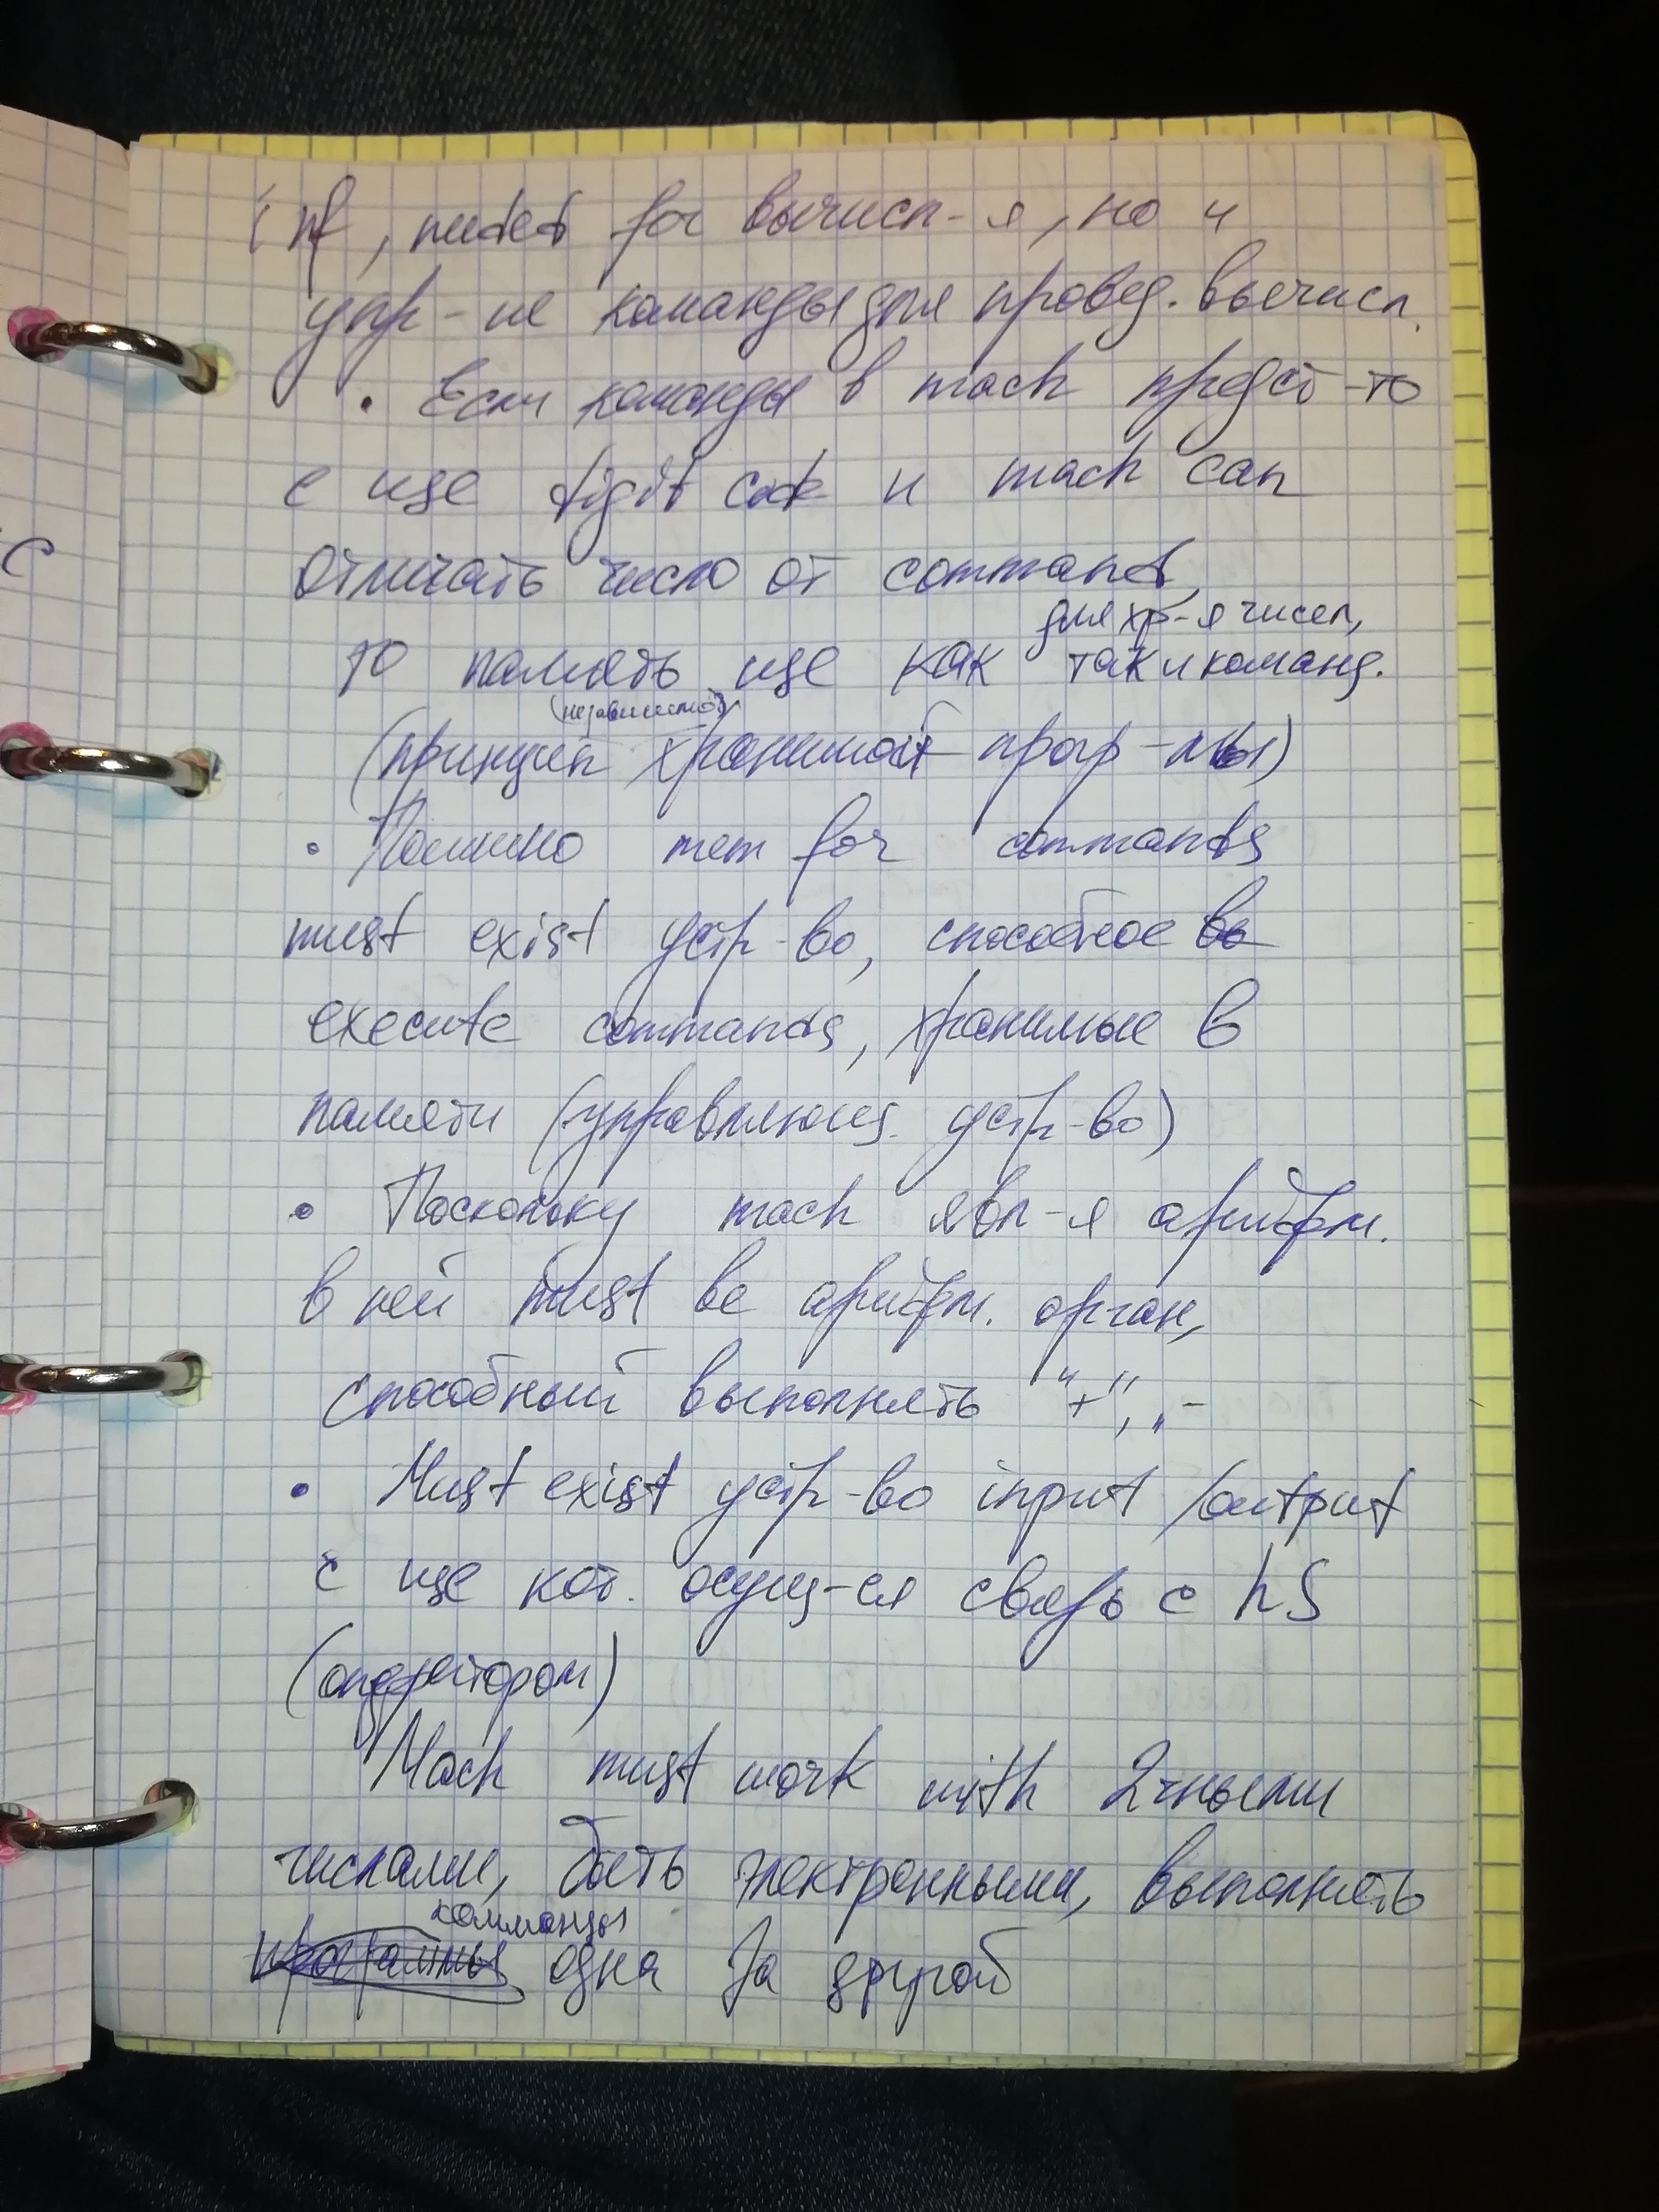 inf, needed for вычисл-я, но и
упр-ие команды для провед. вычисл.
• Если команды в mach предст-то
с use digit code и mach can
отличать число от command,
для хр-я чисел,
то память use как так и команд.
(независимой)
(принцип хранимой прогр-мы)
• Помимо mem for commands
must exist устр-во, способное
execute commands, хранимые в
памяти (управляющ. устр-во)
• Поскольку mach явл-я арифм.
в ней must be арифм. орган,
способный выполнять "+", "-
• Must exist устр-во input/output
с use кот. осущ-ся связь с hS
(оператором)
Mach must work with 2чными
числами, быть электронными, выполнять
комманды
программы одна за другой
с